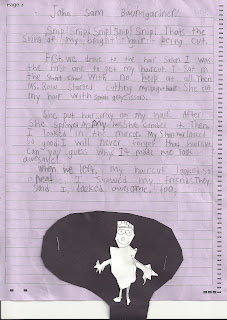 Page 2
John Sam Baumgardner
Snip! Snip! Snip! Snip! Snip! Thats the
sound of my bright hair being cut.
First we drove to the hair salon. I was
the first one to get my haircut. I sat in
the chair with no help at all. Then
Ms. Rosa started cutting my bright hair. She cut
my hair with scissors.
She put hair spray on my hair. After
she sprayed my hair she combed it. Then
I looked in the mirror. My short hair looks
so good. I will never forget this haircut.
Can you guess why? It made me look
awesome!
When we left, my haircut looked so
neat. I showed my friends. They
said I looked awesome, too.